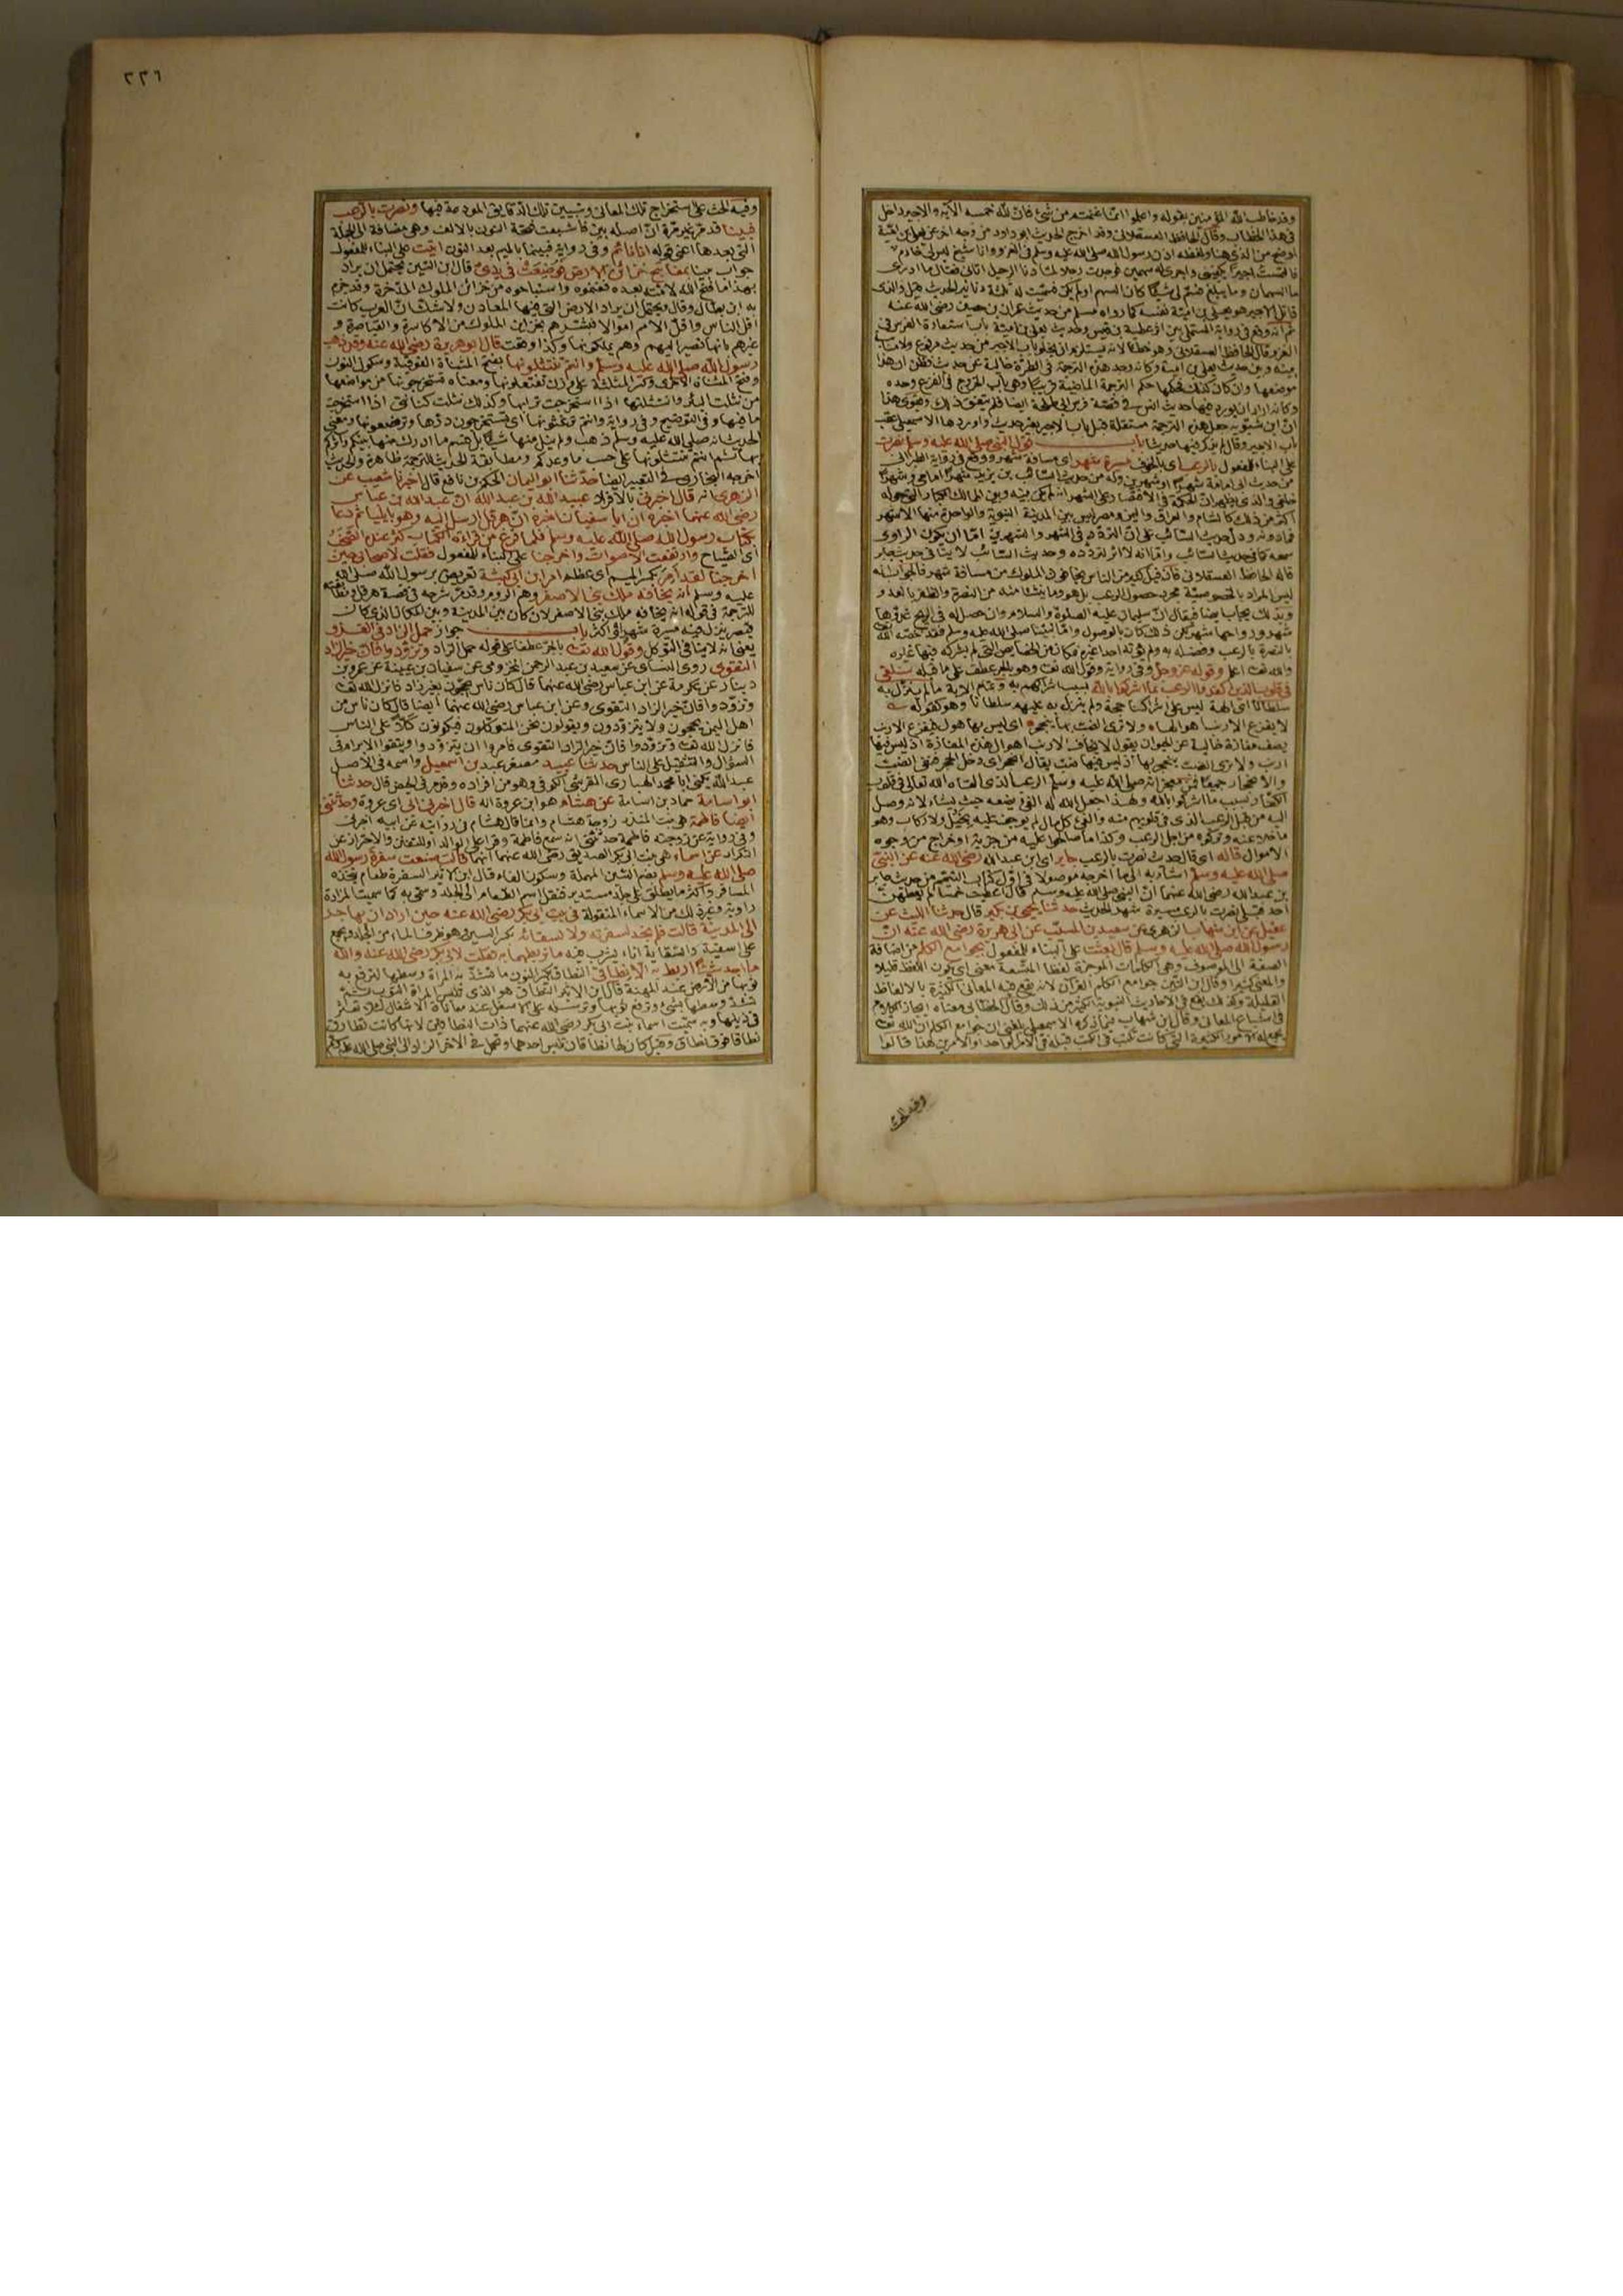 وقد خاطب الله المؤمنين بقوله واعلموا انما غنمتم من شئ فان لله خمسه الآية والاجير داخل
في هذا الخطاب وقال الحافظ العسقلاني وقد اخرج الحديث ابو داود من وجه اخر عن يعلى بن امية
اوضح من الذي هنا ولفظه اذن رسول الله صلى الله عليه وسلم في الغزو وانا شيخ ليس لي خادم
فالتمست اجيرا يكفيني واجري له سهمين فوجدت رجلا لما دنا الرحيل اتاني فقال ما ادري
ما السهمان وما يبلغ فسم لي شيئا كان السهم او لم يكن فسميت له ثلثة دنانير الحديث
قاتل الاجير هو يعلى بن امية نفسه كما رواه مسلم من حديث عمران بن حصين رضي الله عنه
ثم انه وقع في رواية المستملي بين اثر عطية بن قيس وحديث يعلى بن امية باب استعارة الفرس في
الغزو قال الحافظ العسقلاني وهو خطأ لانه يستلزم ان يخلو باب الاجير من حديث مرفوع ولا مناسبة
بينه وبين حديث يعلى بن امية وكانه وجد هذه الترجمة في الطرة خالية عن حديث فظن ان هذا
موضعها وان كان كذلك فحكمها حكم الترجمة الماضية قريبا وهي باب الخروج في الفزع وحده
وكانه اراد ان يورد فيها حديث انس في قصة فرس ابي طلحة ايضا فلم يتفق ذلك ويقوي هذا
ان ابن شبويه جعل هذه الترجمة مستقلة قبل باب الاجير بغير حديث واوردها الاسمعيلي عقب
باب الاجير وقال لم يذكر فيها حديثا باب قول النبي صلى الله عليه وسلم نصرت
على البناء للمفعول بالرعب اي بالخوف مسيرة شهر اي مسافة شهر ووقع في رواية الطبراني
من حديث ابي امامة شهرا او شهرين وله من حديث السائب بن يزيد شهرا امامي وشهرا
خلفي والذي يظهر ان الحكمة في الاقتصار على الشهر انه لم يكن بينه وبين الممالك الكبار التي حوله
اكثر من ذلك كالشام والعراق واليمن ومصر ليس بين المدينة النبوية والواحدة منها الا شهر
فما دونه ودل حديث السائب على ان التردد في الشهر والشهرين اما ان يكون الراوي
سمعه كما في حديث السائب واما انه لا اثر لتردده وحديث السائب لا ينافي حديث جابر
قاله الحافظ العسقلاني فان قيل كثير من الناس يخافون الملوك من مسافة شهر فالجواب انه
ليس المراد بالخصوصية مجرد حصول الرعب بل هو وما ينشأ منه من النصرة والظفر بالعدو
وبذلك يجاب ايضا فيقال ان سليمان عليه الصلوة والسلام وان حصل له في الريح غدوها
شهر ورواحها شهر لكن ذلك كان بالوصول واما نبينا صلى الله عليه وسلم فقد خصه الله
بالنصرة بالرعب وفضله به ولم يؤته احدا غيره فكان من الخصايص التي لم يشركه فيها غيره
والله تعالى اعلم وقوله عز وجل وفي رواية وقول الله تعالى وهو بالجر عطف على ما قبله سنلقي
في قلوب الذين كفروا الرعب بما اشركوا بالله بسبب اشراكهم به وتمام الآية ما لم ينزل به
سلطانا اي آلهة ليس على اشراكها حجة ولم ينزل به عليهم سلطانا وهو كقوله
لا يفزع الارنب اهوالها ولا ترى الضب بها ينجحر اي ليس بها هول يفزع الارنب
يصف مفازة خالية عن الحيوان يقول لا يخاف الارنب اهوال هذه المفازة اذ ليس فيها
ارنب ولا ترى الضب ينجحر بها اذ ليس فيها ضب يقال انجحر اي دخل الحجر فنفى الضب
والانجحار جميعا فمن معجزاته صلى الله عليه وسلم الرعب الذي القاه الله تعالى في قلوب
الكفار بسبب ما اشركوا بالله ولهذا جعل الله له الفئ يضعه حيث يشاء لانه وصل
اليه من قبل الرعب الذي في قلوبهم منه والفئ كل مال لم يوجف عليه بخيل ولا ركاب وهو
ما خلوا عنه وتركوه من اجل الرعب وكذا ما صالحوا عليه من جزية او خراج من وجوه
الاموال قاله اي قال حديث نصرت بالرعب جابر اي ابن عبد الله رضي الله عنه عن النبي
صلى الله عليه وسلم اشار به الى ما اخرجه موصولا في اول كتاب التيمم من حديث جابر
بن عبد الله رضي الله عنهما ان النبي صلى الله عليه وسلم قال اعطيت خمسا لم يعطهن
احد قبلي نصرت بالرعب مسيرة شهر الحديث حدثنا يحيى بن بكير قال حدثنا الليث عن
عقيل عن ابن شهاب الزهري عن سعيد بن المسيب عن ابي هريرة رضي الله عنه ان
رسول الله صلى الله عليه وسلم قال بعثت على البناء للمفعول بجوامع الكلم من اضافة
الصفة الى الموصوف وهي الكلمات الموجزة لفظا المتسعة معنى اي يكون اللفظ قليلا
والمعنى كثيرا وقال ابن التين جوامع الكلم القرآن لانه يقع فيه المعاني الكثيرة بالالفاظ
القليلة وكذلك يقع في الاحاديث النبوية الكثير من ذلك وقال الخطابي معناه ايجاز الكلام
في اشباع المعاني وقال ابن شهاب فيما ذكره الاسمعيلي بلغني ان جوامع الكلم ان الله تعالى
يجمع له الامور الكثيرة التي كانت تكتب في الكتب قبله في الامر الواحد او الامرين هذا قالوا
وفيه الحث
٢٢٦
وفيه الحث على استخراج تلك المعاني وتبيين تلك الدقايق المودعة فيها ونصرت بالرعب
فبينا قد مر غير مرة ان اصله بين فاشبعت فتحة النون بالالف وهي مضافة الى الجملة
التي بعدها اعني قوله انا نائم وفي رواية فبينما بالميم بعد النون اتيت على البناء للمفعول
جواب بينا بمفاتيح خزائن الارض فوضعت في يدي قال ابن التين يحتمل ان يراد
بهذا ما فتح الله لامته بعده فغنموه واستباحوه من خزائن الملوك المدخرة وقد جزم
به ابن بطال وقال ويحتمل ان يراد الارض التي فيها المعادن ولا شك ان العرب كانت
اقل الناس واقل الامم اموالا فبشرهم بخزاين الملوك من الاكاسرة والقياصرة و
غيرهم بانها تصير اليهم وهم يملكونها وكذا وقعت قال ابو هريرة رضي الله عنه وقد ذهب
رسول الله صلى الله عليه وسلم وانتم تنتثلونها بفتح المثناة الفوقية وسكون النون
وفتح المثناة الاخرى وكسر المثلثة على وزن تفتعلونها ومعناه تستخرجونها من مواضعها
من نثلت البئر وانتثلتها اذا استخرجت ترابها وكذلك نثلت كنانتي اذا استخرجت
ما فيها وفي التوضيح وفي رواية وانتم ترغثونها اي تستخرجون درها وترضعونها ومعنى
الحديث انه صلى الله عليه وسلم ذهب ولم ينل منها شيئا بل قسم ما ادرك منها بينكم وآثركم
بها ثم انتم تنتثلونها على حسب ما وعدكم ومطابقة الحديث للترجمة ظاهرة والحديث
اخرجه البخاري في التعبير ايضا حدثنا ابو اليمان الحكم بن نافع قال اخبرنا شعيب عن
الزهري انه قال اخبرني بالافراد عبيد الله بن عبد الله ان عبد الله بن عباس
رضي الله عنهما اخبره ان ابا سفيان اخبره ان هرقل ارسل اليه وهو بايلياء ثم دعا
بكتاب رسول الله صلى الله عليه وسلم فلما فرغ من قراءة الكتاب كثر عنده الصخب
اي الصياح وارتفعت الاصوات واخرجنا على البناء للمفعول فقلت لاصحابي حين
اخرجنا لقد امر بكسر الميم اي عظم امر ابن ابي كبشة تعريض برسول الله صلى الله
عليه وسلم انه يخافه ملك بني الاصفر وهم الروم وقد مر شرحه في قصة هرقل ومطابقته
للترجمة في قوله انه يخافه ملك بني الاصفر لانه كان بين المدينة وبين المكان الذي كان
قيصر ينزل فيه مسيرة شهر او اكثر باب جواز حمل الزاد في الغزو
يعني انه لا ينافي التوكل وقول الله تعالى بالجر عطفا على قوله حمل الزاد وتزودوا فان خير الزاد
التقوى روى النسائي عن سعيد بن عبد الرحمن المخزومي عن سفيان بن عيينة عن عمرو بن
دينار عن عكرمة عن ابن عباس رضي الله عنهما قال كان ناس يحجون بغير زاد فانزل الله تعالى
وتزودوا فان خير الزاد التقوى وعن ابن عباس رضي الله عنهما ايضا قال كان ناس من
اهل اليمن يحجون ولا يتزودون ويقولون نحن المتوكلون فيكونون كلا على الناس
فانزل الله تعالى وتزودوا فان خير الزاد التقوى فامروا ان يتزودوا ويتقوا الابرام في
السؤال والتثقيل على الناس حدثنا عبيد مصغر عبد بن اسمعيل واسمه في الاصل
عبد الله يكنى ابا محمد الهباري القرشي الكوفي وهو من افراده وقد مر في الحيض قال حدثنا
ابو اسامة حماد بن اسامة عن هشام هو ابن عروة انه قال اخبرني ابي اي عروة وحدثتني
ايضا فاطمة هي بنت المنذر زوجة هشام وانما قال هشام في روايته عن ابيه اخبرني
وفي روايته عن زوجته فاطمة حدثتني انه سمع فاطمة وقرأ على الوالد او للتفنن والاحتراز عن
التكرار عن اسماء هي بنت ابي بكر الصديق رضي الله عنهما انها قالت صنعت سفرة رسول الله
صلى الله عليه وسلم بضم السين المهملة وسكون الفاء قال ابن الاثير السفرة طعام يتخذه
المسافر واكثر ما يطلق على جلد مستدير فنقل اسم الطعام الى الجلد وسمي به كما سميت المزادة
راوية وغير ذلك من الاسماء المنقولة في بيت ابي بكر رضي الله عنه حين اراد ان يهاجر
الى المدينة قالت فلم نجد لسفرته ولا لسقائه بكسر السين وهو ظرف الماء من الجلد ويجمع
على اسقية والسقاية اناء يشرب فيه ما نربطهما به فقلت لابي بكر رضي الله عنه والله
ما اجد شيئا اربط به الا نطاقي النطاق بكسر النون ما تشد به المرأة وسطها لترفع به
ثوبها من الارض عند المهنة قال ابن الاثير النطاق هو الذي تلبس المرأة الثوب ثم
تشد وسطها بشئ وترفع ثوبها وترسله على الاسفل عند معاناة الاشغال لئلا تعثر
في ذيلها وبه سميت اسماء بنت ابي بكر رضي الله عنهما ذات النطاقين لانها كانت تطارق
نطاقا فوق نطاق وقيل كان لها نطاقان تلبس احدهما وتحمل في الآخر الزاد الى النبي صلى الله عليه وسلم